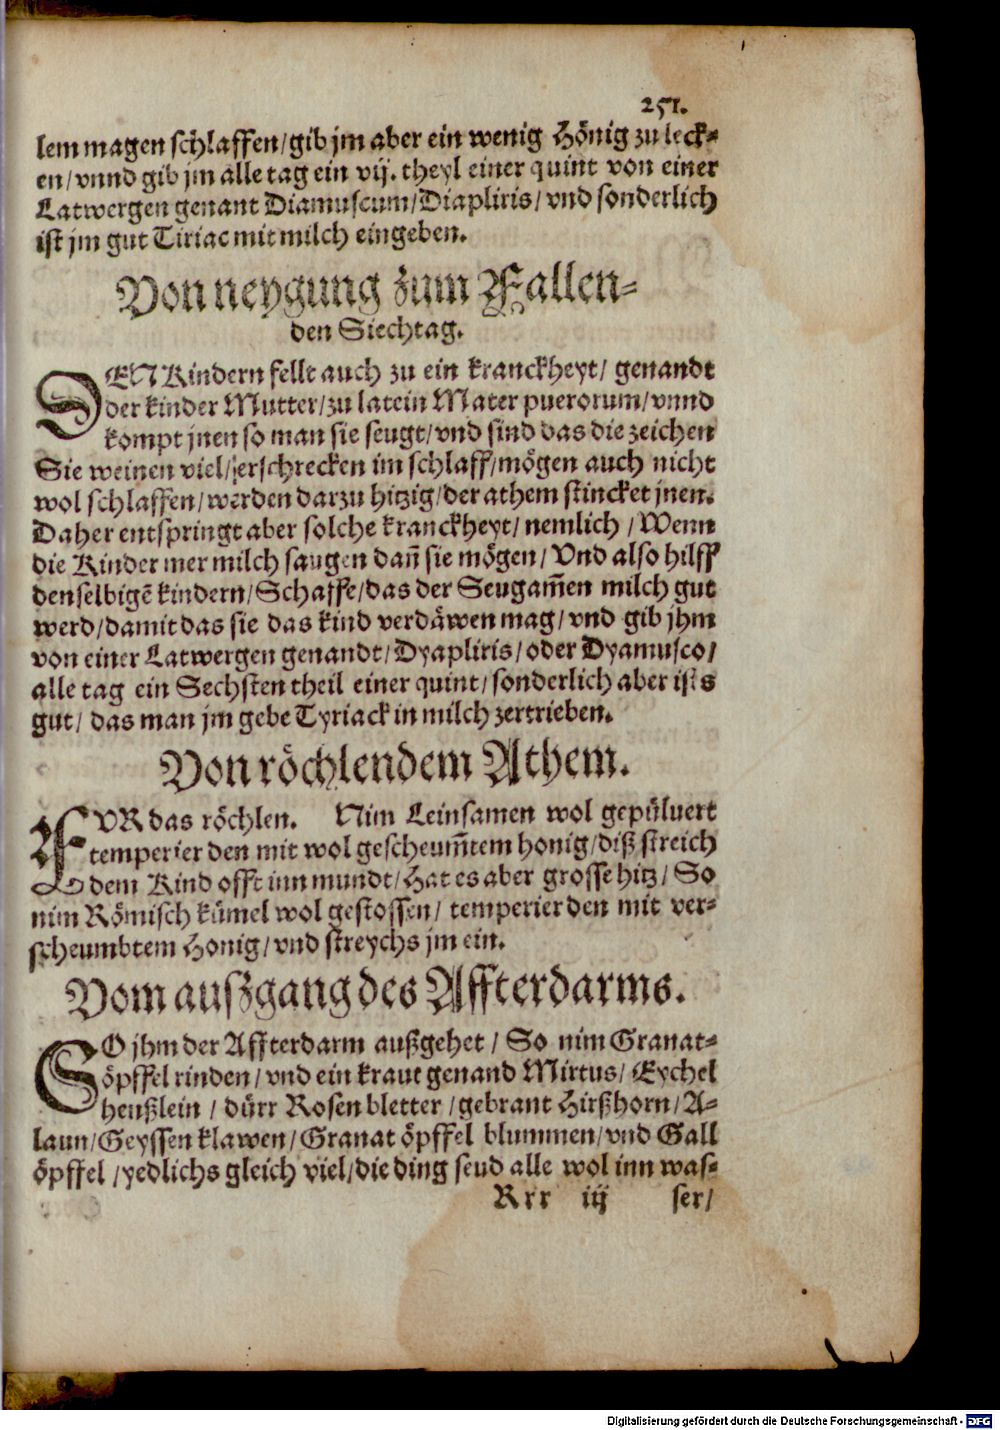 251.
lem magen schlaffen/gib jm aber ein wenig Hönig zu leck-
en/vnnd gib jm alle tag ein vij. theyl einer quint von einer
Latwergen genant Diamuscum/Diapliris/ vnd sonderlich
ist jm gut Tiriac mit milch eingeben.
Von neygung zum Fallen-
den Siechtag.
DEN Kindern fellt auch zu ein kranckheyt/ genandt
der kinder Mutter/zu latein Mater puerorum/vnnd
kompt jnen so man sie seugt/vnd sind das die zeichen
Sie weinen viel/erschrecken im schlaff/mögen auch nicht
wol schlaffen/werden darzu hitzig/der athem stincket jnen.
Daher entspringt aber solche kranckheyt/ nemlich /Wenn
die Kinder mer milch saugen dañ sie mögen/ Vnd also hilff
denselbigē kindern/Schaffe/das der Seugam̄en milch gut
werd/damit das sie das kind verdäwen mag/vnd gib jhm
von einer Latwergen genandt/Dyapliris/oder Dyamusco/
alle tag ein Sechsten theil einer quint/sonderlich aber ists
gut/ das man jm gebe Tyriack in milch zertrieben.
Von röchlendem Athem.
FVR das röchlen. Nim Leinsamen wol gepüluert
temperier den mit wol gescheum̄tem honig/diß streich
dem Kind offt inn mundt/Hat es aber grosse hitz/ So
nim Römisch kümel wol gestossen/ temperier den mit ver-
scheumbtem Honig/vnd streychs jm ein.
Vom außgang des Affterdarms.
SO jhm der Affterdarm außgehet / So nim Granat-
öpffel rinden/vnd ein kraut genand Mirtus/ Eychel
heußlein / dürr Rosen bletter /gebrant Hirßhorn/A-
laun/Geyssen klawen/Granat öpffel blummen/vnd Gall
öpffel /yedlichs gleich viel/die ding seud alle wol inn was-
Rrr iij ser/
Digitalisierung gefördert durch die Deutsche Forschungsgemeinschaft - DFG